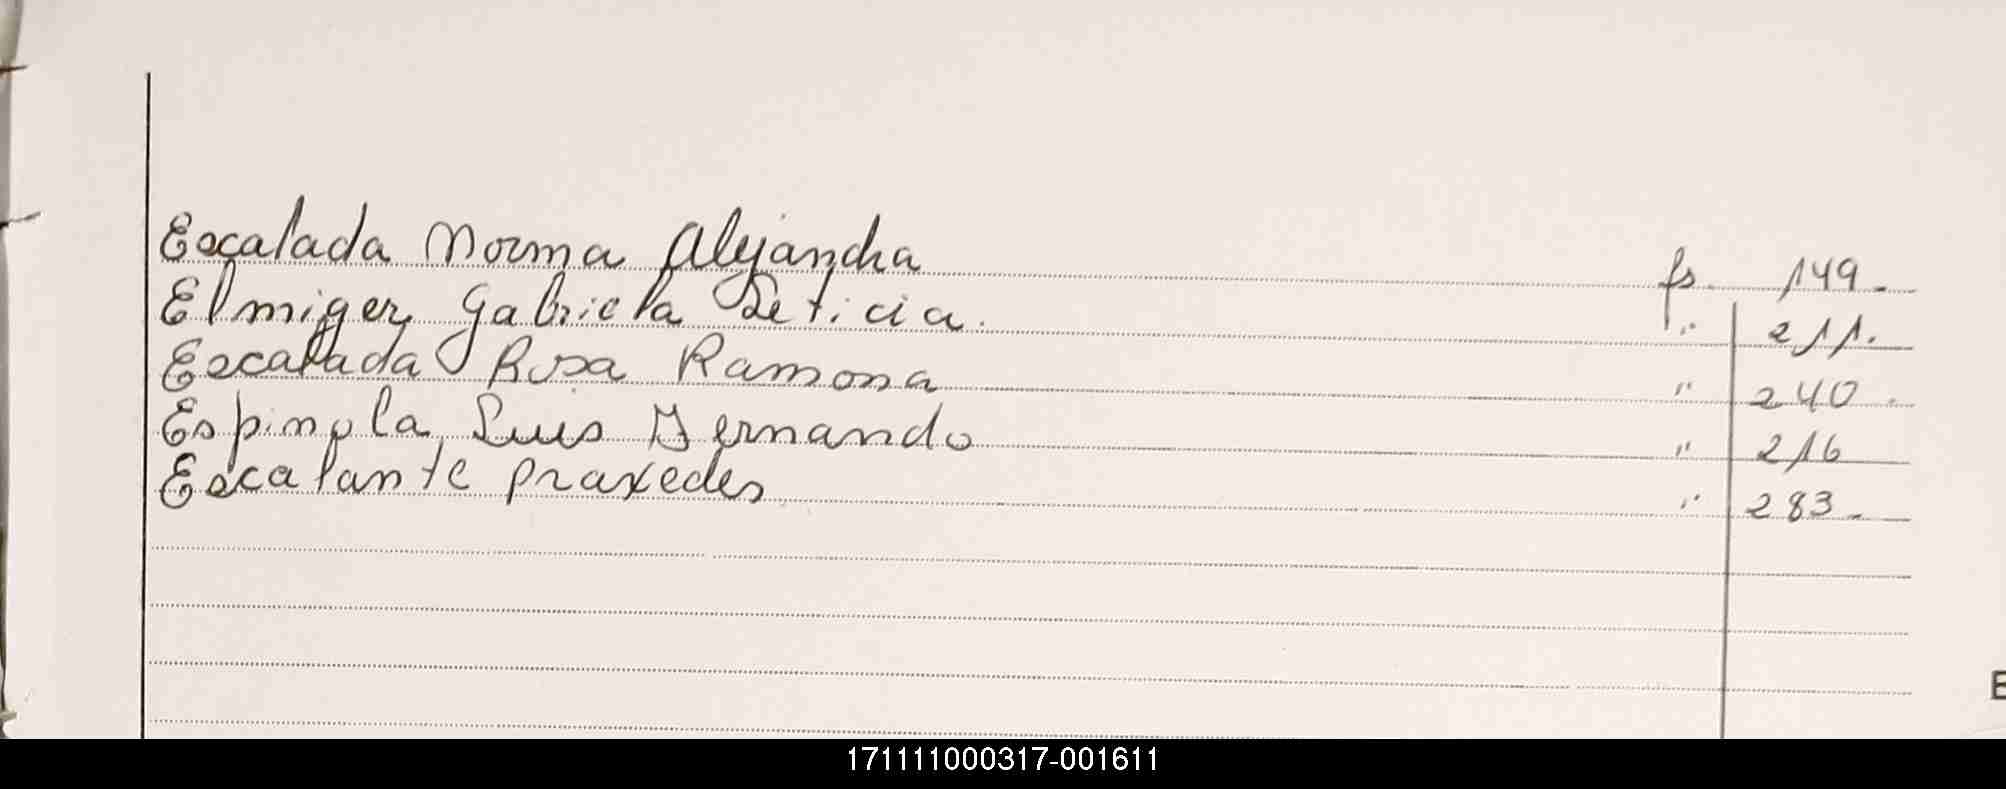 Escalada Norma Alejandra fs. 149.
Elmiger Gabriela Leticia. " 211.
Escalada Rosa Ramona " 240.
Espinola, Luis Fernando " 216
Escalante praxedes " 283.
E
171111000317-001611